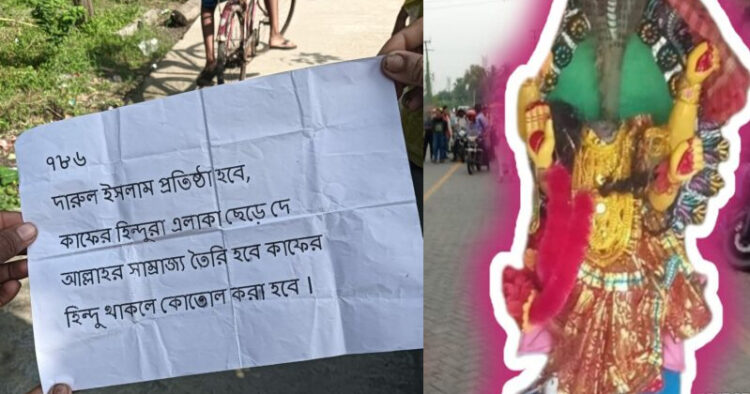 ৭৮৬
দারুল ইসলাম প্রতিষ্ঠা হবে,
কাফের হিন্দুরা এলাকা ছেড়ে দে
আল্লাহর সাম্রাজ্য তৈরি হবে কাফের
হিন্দু থাকলে কোতোল করা হবে ।